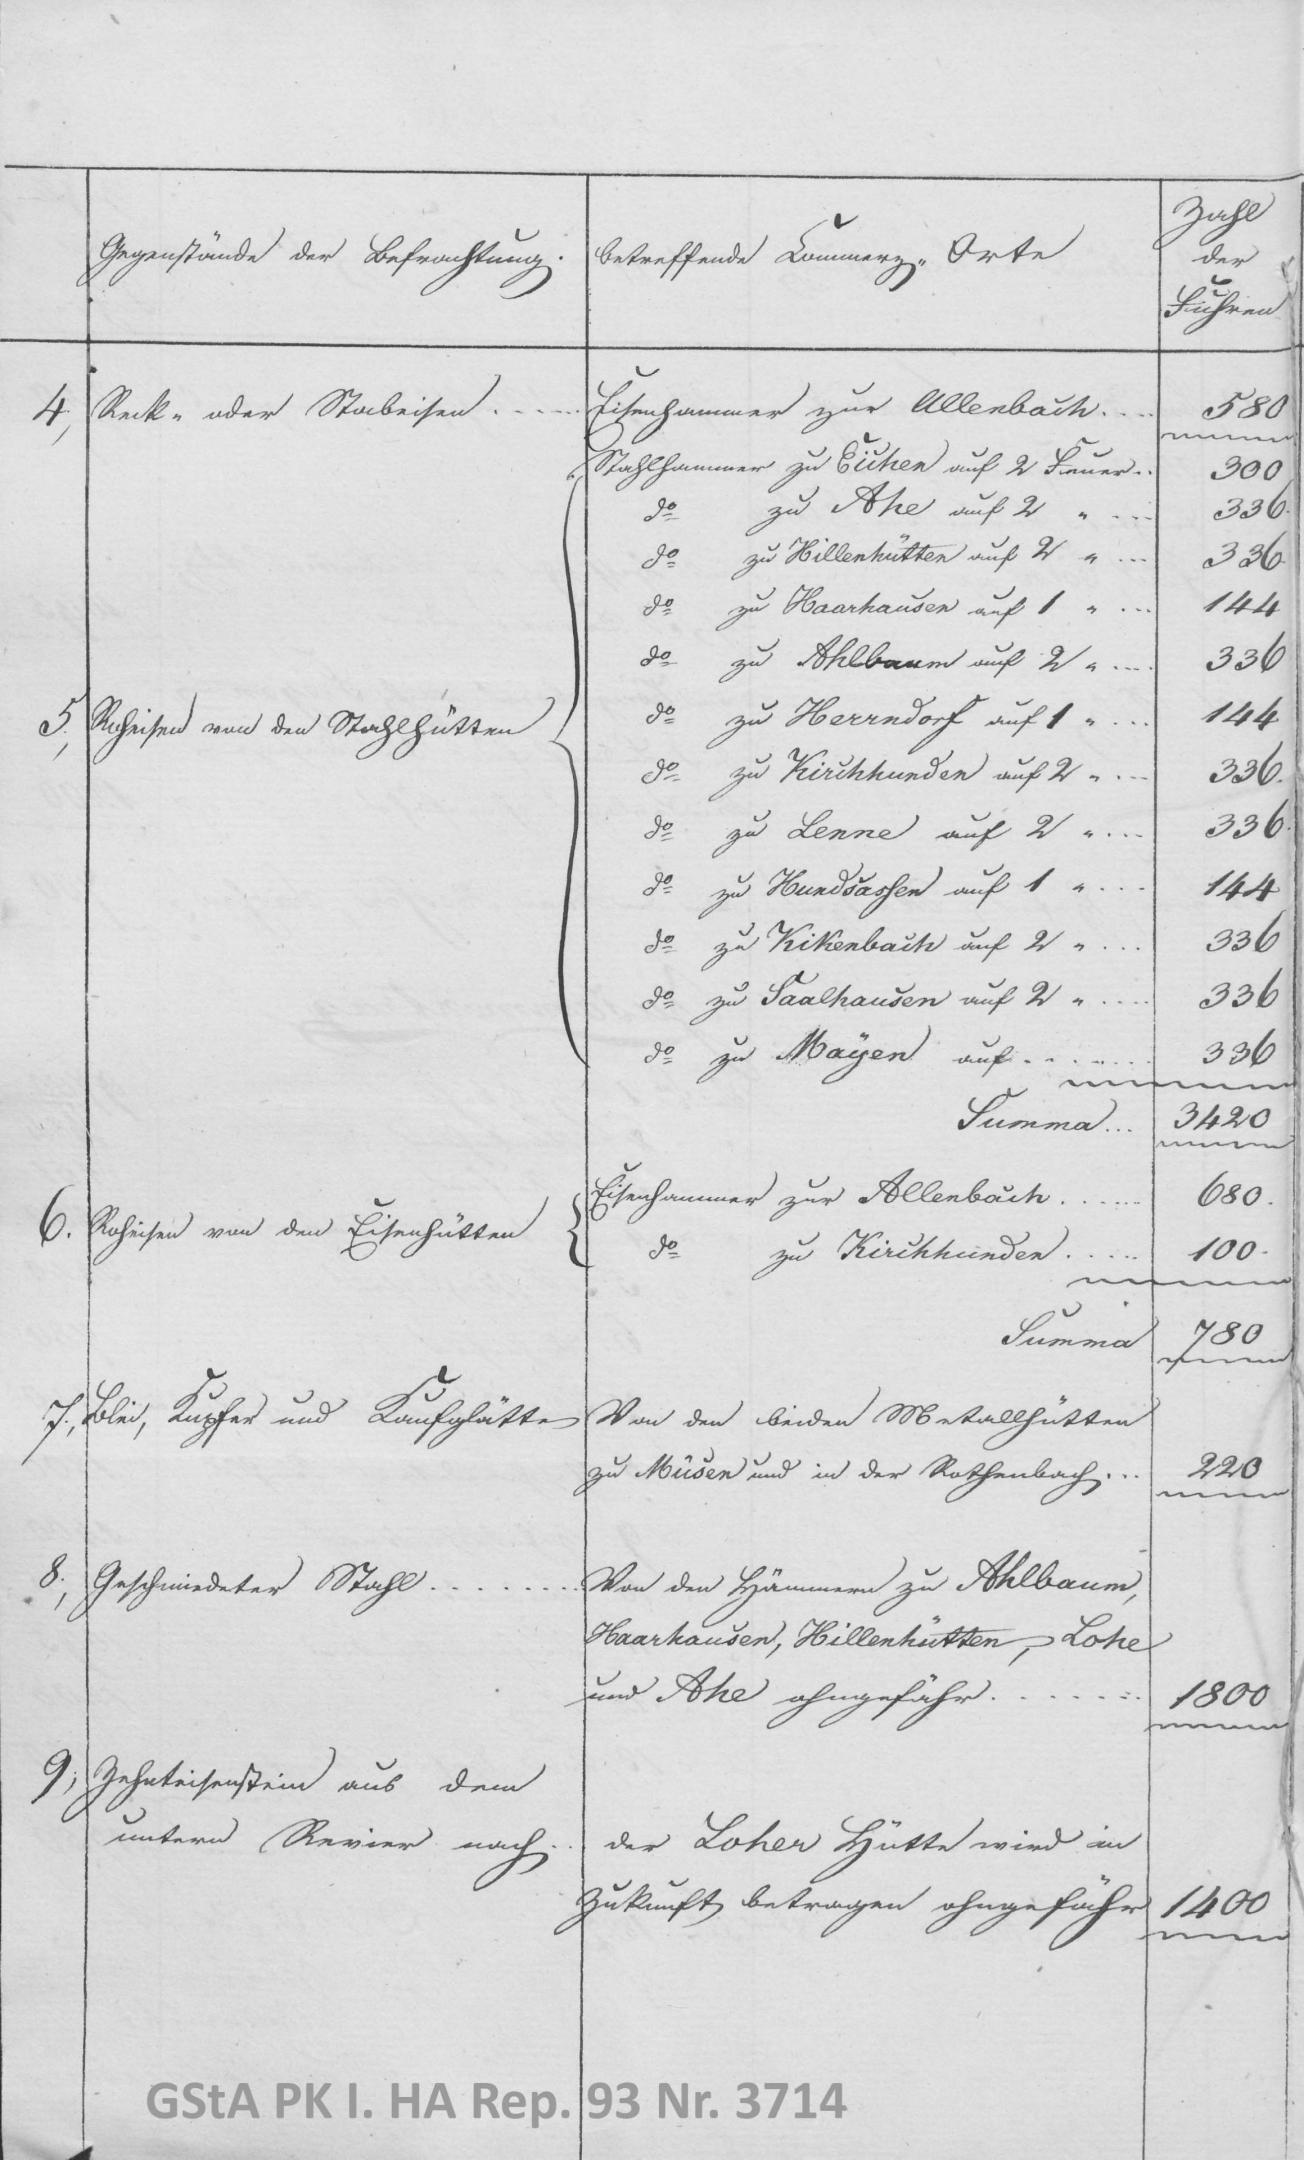 Gegenstände der Befrachtung. betreffende Commerz„ Orte Zahl
der
Fuhren
4., Reck„ oder Stabeisen ..... Eisenhammer zur Allenbach .... 580
Stahlhammer zu Eichen auf 2 Feuer .. 300
do zu Ahe auf 2 „ ... 336.
do zu Hillenhütten auf 2 „ ... 336.
do zu Haarhausen auf 1 „ ... 144
do zu Ahlbaum auf 2 „ .... 336
5., Roheisen von den Stahlhütten do zu Herrndorf auf 1 „ ... 144
do zu Kirchhunden auf 2 „ ... 336.
do zu Lenne auf 2 „ ... 336.
do zu Hundsassen auf 1 „ ... 144
do zu Kikenbach auf 2 „ ... 336
do zu Saalhausen auf 2 „ .... 336
do zu Mayen auf ....... 336
Summa ... 3420
Eisenhammer zur Allenbach ...... 680.
6. Roheisen von den Eisenhütten do zu Kirchhunden ..... 100.
Summa 780
7., Blei, Kupfer und Kaufglätte Von den beiden Metallhütten
zu Müsen und in der Rothenbach ... 220
8., Geschmiedeter Stahl ........ Von den Hämmern zu Ahlbaum,
Haarhausen, Hillenhütten, Lohe
und Ahe ohngefähr ........ 1800
9; Zehnteisenstein aus dem
untern Revier nach .. der Loher Hütte wird in
Zukunft betragen ohngefähr 1400
GStA PK I. HA Rep. 93 Nr. 3714